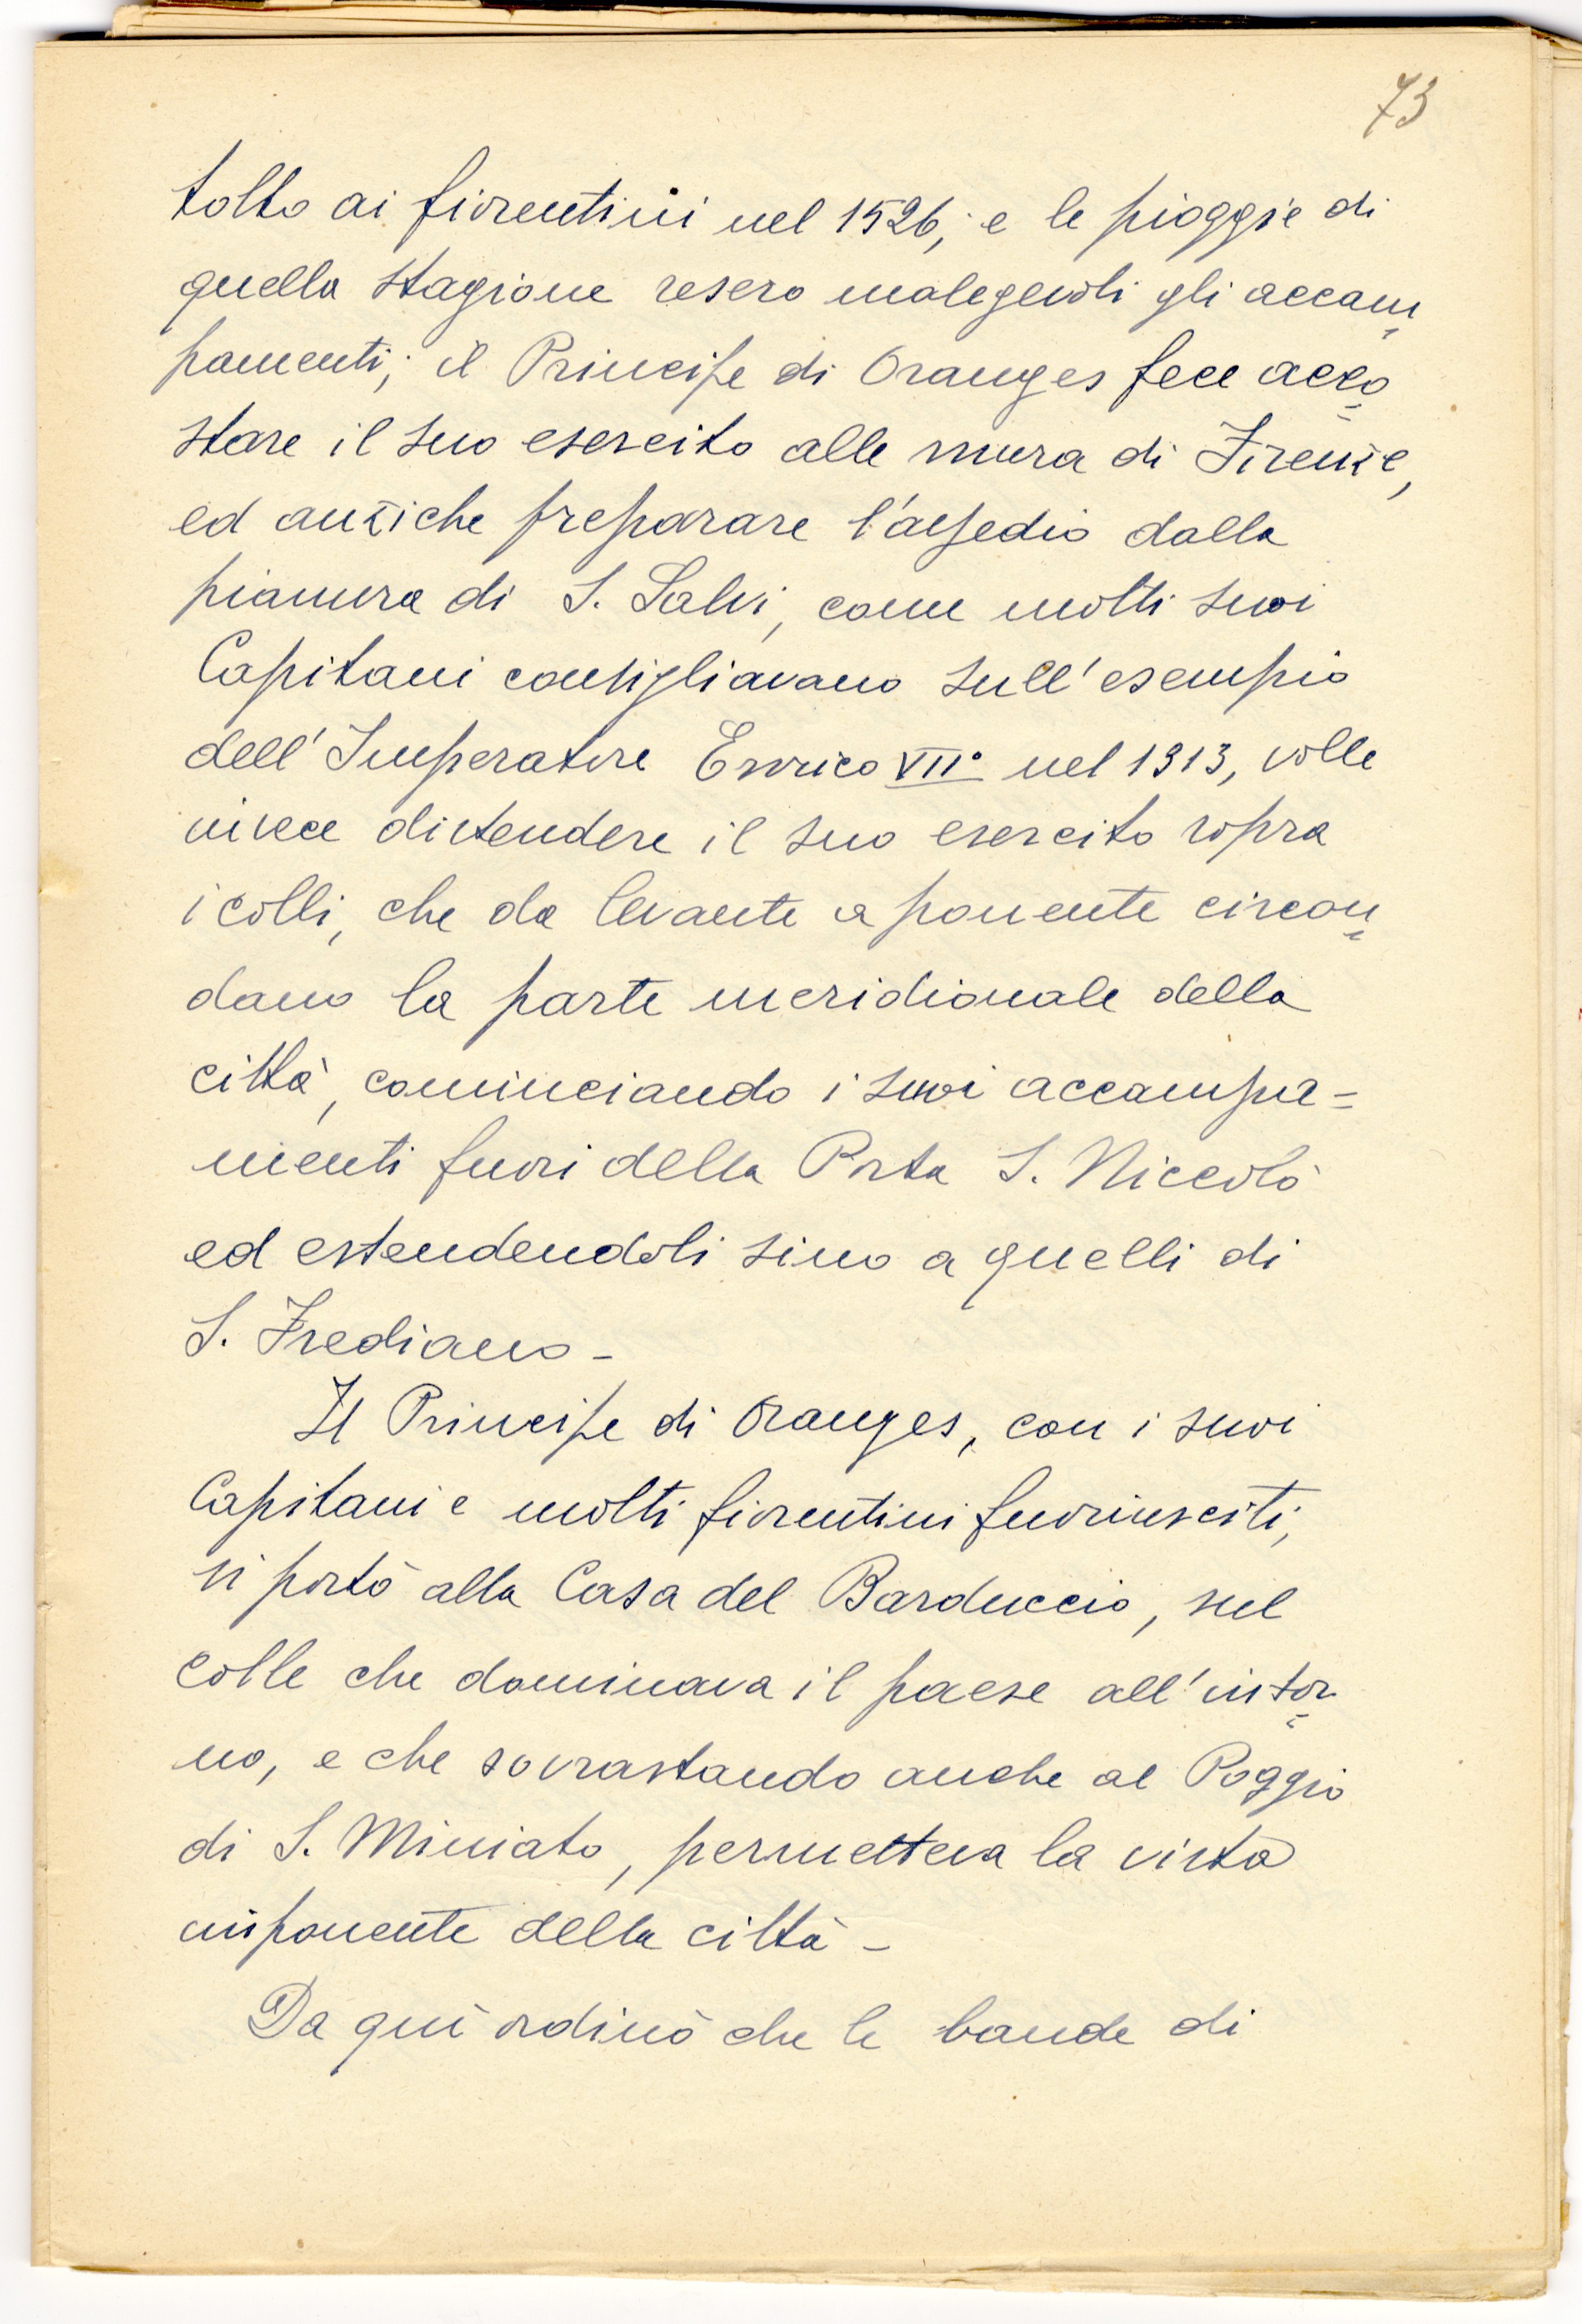 73
tolto ai fiorentini nel 1526; e le pioggie di
quella stagione resero malegevoli gli accam=
pamenti; il Principe di Oranges fece acco=
stare il suo esercito alle mura di Firenze,
ed anziche preparare l'assedio dalla
pianura di S. Salvi, come molti suoi
Capitani consigliavano sull'esempio
dell'Imperatore Enrico VII° nel 1313, volle
invece distendere il suo esercito sopra
i colli, che da levante a ponente circon=
dano la parte meridionale della
città, cominciando i suoi accampa=
menti fuori della Porta S. Niccolò
ed estendendoli sino a quelli di
S. Frediano –
Il Principe di Oranges, con i suoi
Capitani e molti fiorentini fuoriusciti,
si portò alla Casa del Barduccio, sul
colle che dominava il paese all'intor=
no, e che sovrastando anche al Poggio
di S. Miniato, permetteva la vista
imponente della città –
Da quì ordinò che le bande di